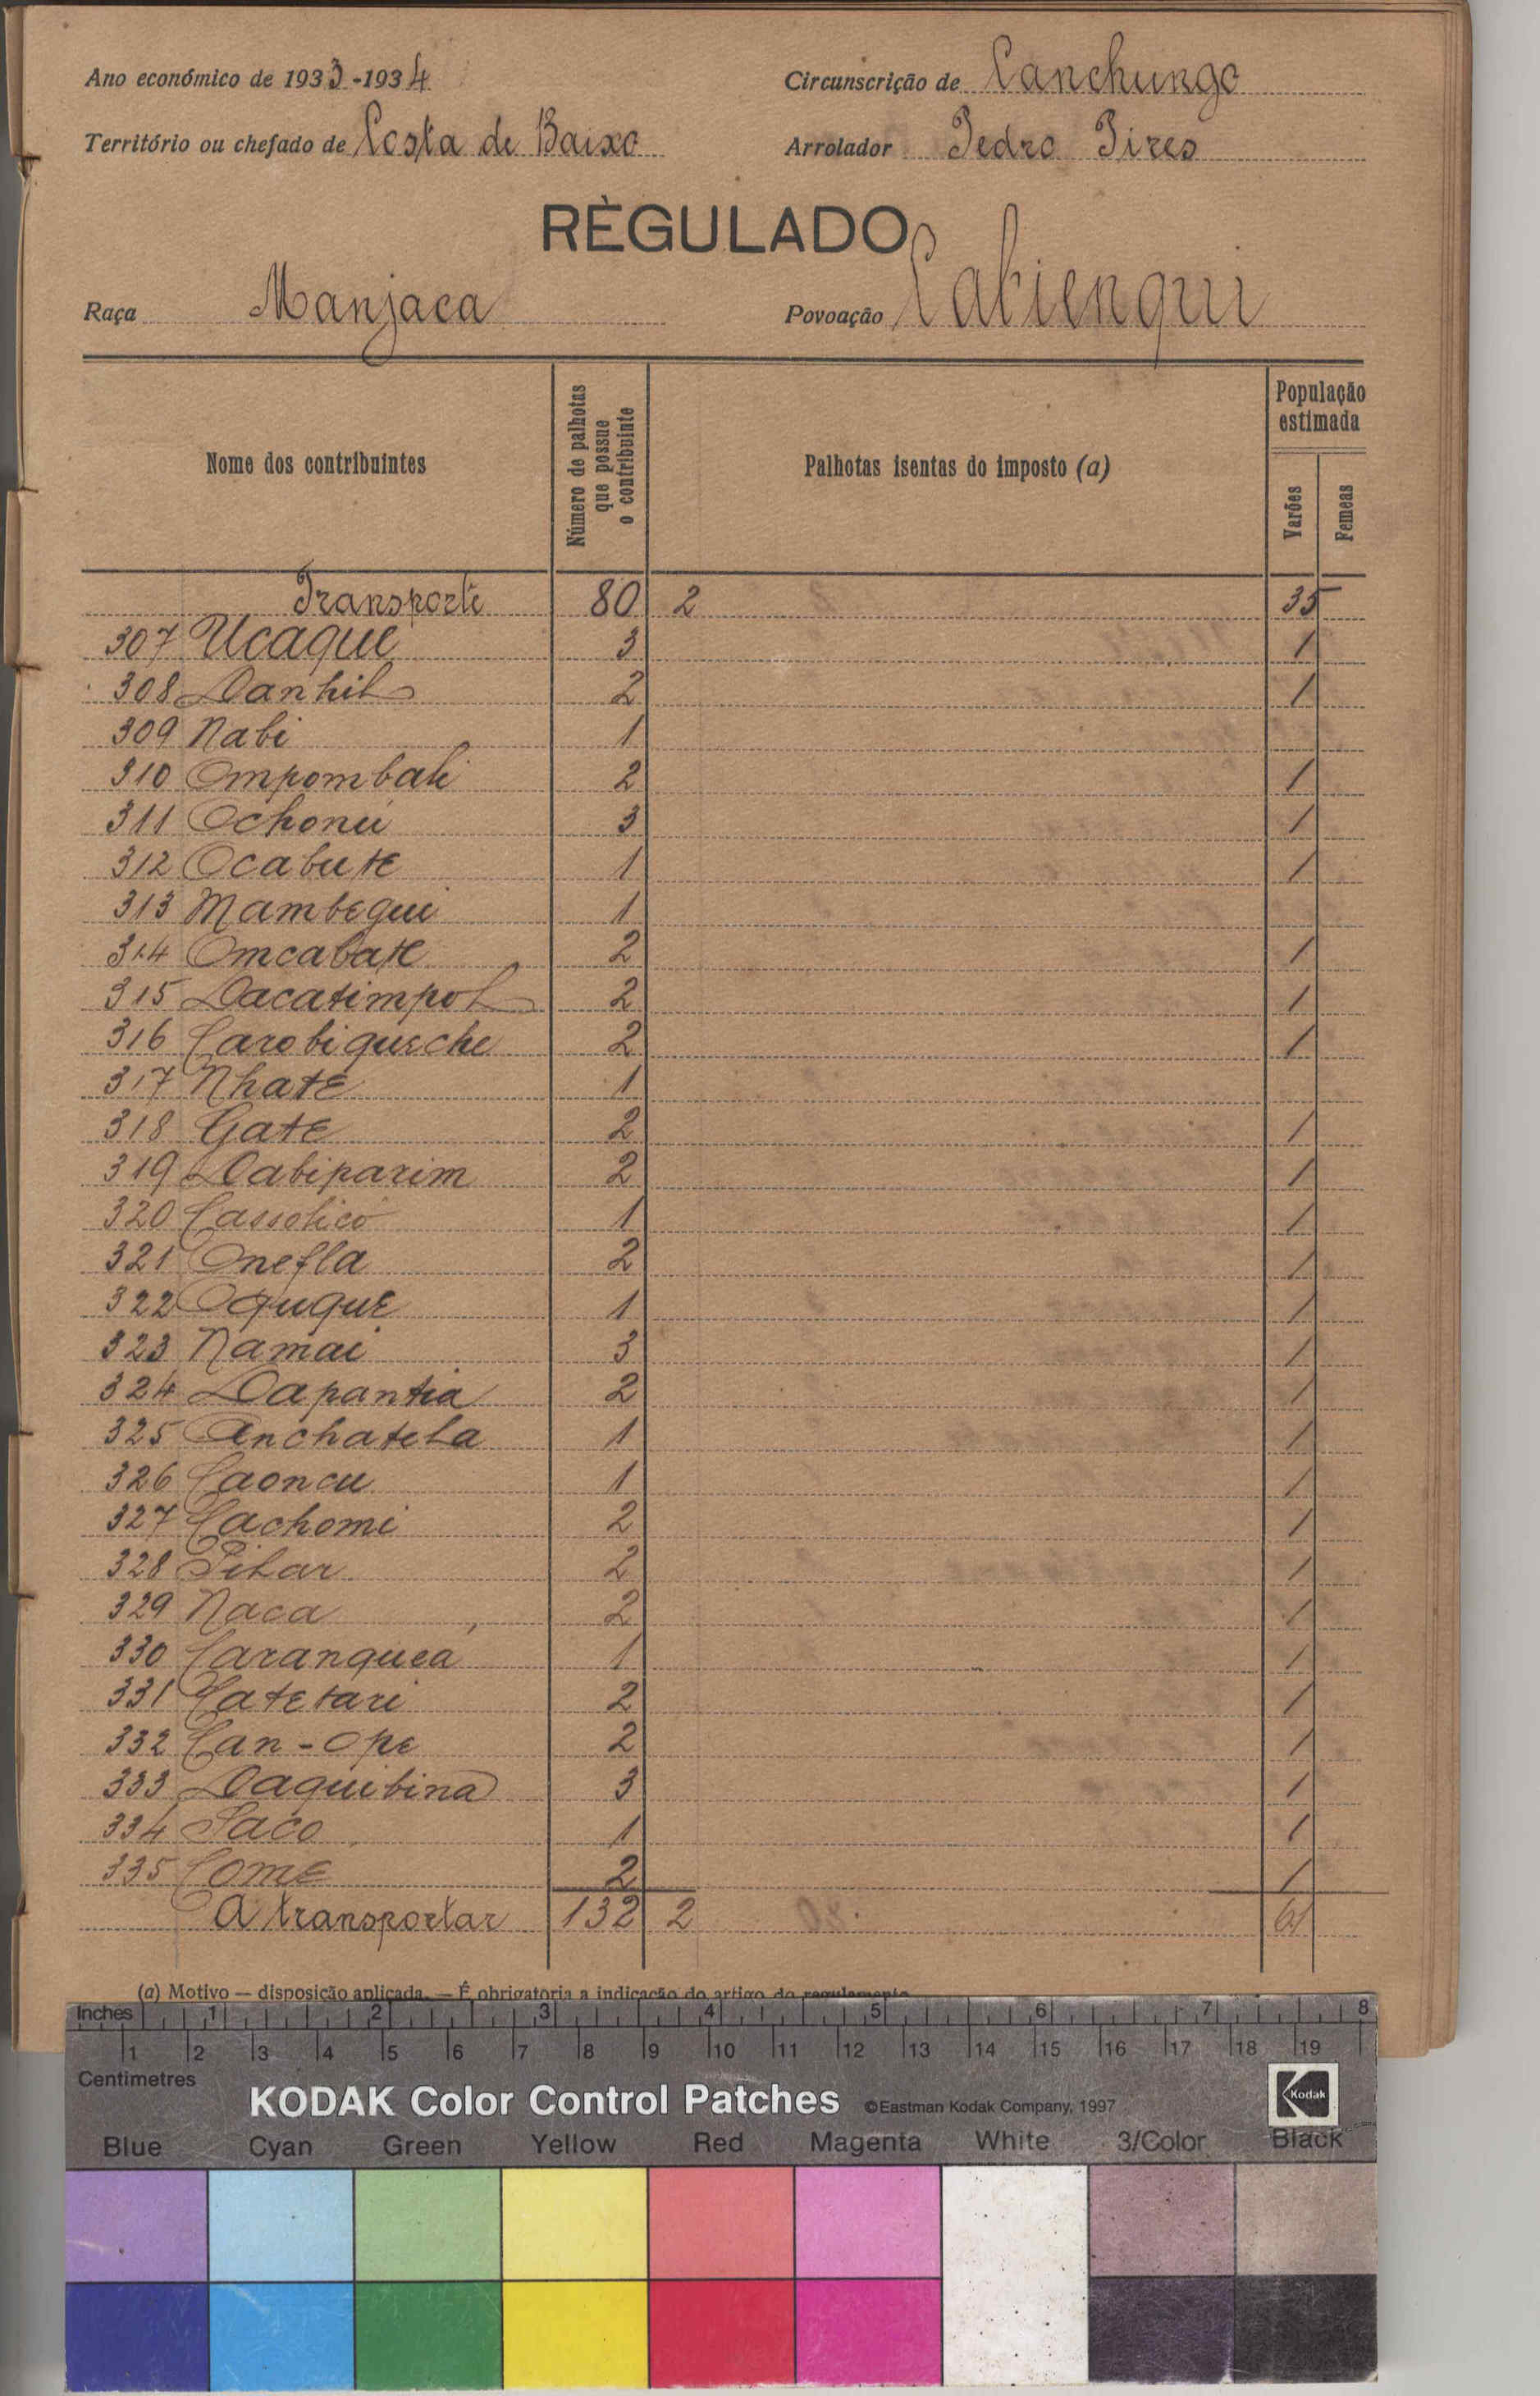 Ano económico de 1933-1934 Circunscrição de Canchungo
Território ou chefado de Costa de Baixo Arrolador Pedro Pires
RÈGULADO
Raça Manjaca Povoação Cabienqui
Nome dos contribuintes Número de palhotas que possue o contribuinte Palhotas isentas do imposto (a) População estimada Varões Femeas
Transporte 80 2 35
307 Ucaque 3 1
308 Danhil 2 1
309 Nabi 1
310 Ompombali 2 1
311 Ochonu 3 1
312 Ocabute 1 1
313 Mambequi 1
314 Omcabate 2 1
315 Dacatimpol 2 1
316 Carobiqueche 2 1
317 Nhate 1
318 Gate 2 1
319 Dabiparim 2 1
320 Cassolico 1 1
321 Onefla 2 1
322 Oquque 1 1
323 Namai 3 1
324 Dapantia 2 1
325 Anchatela 1 1
326 Caoncu 1 1
327 Cachomi 2 1
328 Pilar 2 1
329 Naca 2 1
330 Caranquea 1 1
331 Catetari 2 1
332 Can-Ope 2 1
333 Daquibina 3 1
334 Saco 1 1
335 Come 2 1
A transportar 132 2 61
(a) Motivo — disposição aplicada. — É obrigatoria a indicação do artigo do regulamento
Inches 1 2 3 4 5 6 7 8
1 2 3 4 5 6 7 8 9 10 11 12 13 14 15 16 17 18 19
Centimetres
KODAK Color Control Patches ©Eastman Kodak Company, 1997 Kodak
Blue Cyan Green Yellow Red Magenta White 3/Color Black